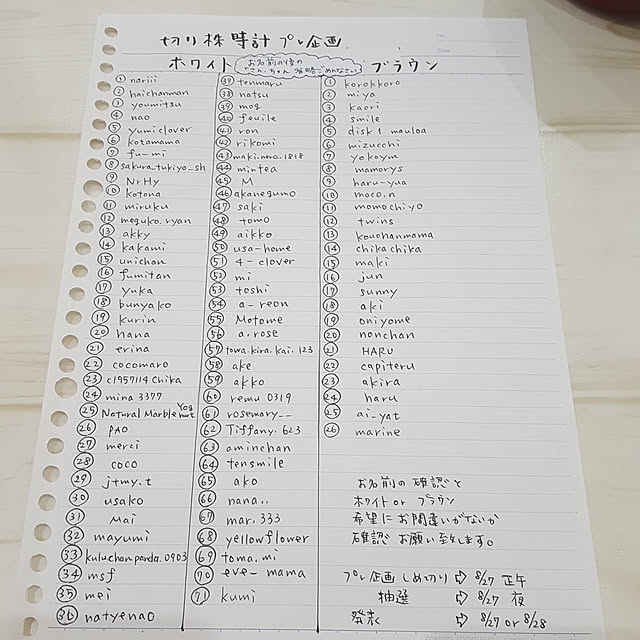 切り株時計プレ企画
ホワイト
お名前の後の
さん、ちゃん省略ごめんなさい
ブラウン
① nariii
② haichanman
③ youmitsu
④ nao
⑤ yumiclover
⑥ kotamama
⑦ fu-mi
⑧ sakura_tukiyo_sh
⑨ NrHy
⑩ kotona
⑪ miruku
⑫ meguko.ryan
⑬ akky
⑭ kakami
⑮ unichan
⑯ fumitan
⑰ yuka
⑱ bunyako
⑲ kurin
⑳ hana
㉑ erina
㉒ cocomaro
㉓ c1957114chika
㉔ mina 3377
㉕ Natural Marble Yoghurt
㉖ PAO
㉗ merci
㉘ coco
㉙ j+my.t
㉚ usako
㉛ Mai
㉜ mayumi
㉝ kuluchanpanda.0903
㉞ msf
㉟ mei
㊱ natyenao
㊲ tenmaru
㊳ natsu
㊴ mog
㊵ feuile
㊶ ron
㊷ rikomi
㊸ maki.nora.1818
㊹ mintea
㊺ M
㊻ akanegumo
㊼ saki
㊽ tomo
㊾ aikko
㊿ usa-home
51 4-clover
52 mi
53 toshi
54 a-reon
55 Motome
56 a.rose
57 towa.kira.kai.123
58 ake
59 akko
60 remu 0319
61 rosemary__
62 Tiffany.623
63 aminchan
64 tensmile
65 ako
66 nana..
67 mar.333
68 yellowflower
69 toma.mi
70 eve-mama
71 kumi
① korokkoro
② miya
③ kaori
④ smile
⑤ disk1 mauloa
⑥ mizucchi
⑦ yokoym
⑧ mamorys
⑨ haru-yua
⑩ moco.n
⑪ momochiyo
⑫ twins
⑬ kouchanmama
⑭ chikachika
⑮ maki
⑯ jun
⑰ sunny
⑱ aki
⑲ oniyome
⑳ nonchan
㉑ HARU
㉒ capiteru
㉓ akira
㉔ haru
㉕ ai-yat
㉖ marine
お名前の確認と
ホワイト or ブラウン
希望にお間違いがないか
確認お願い致します。
プレ企画しめ切り ⇨ 8/27 正午
抽選 ⇨ 8/27 夜
発表 ⇨ 8/27 or 8/28